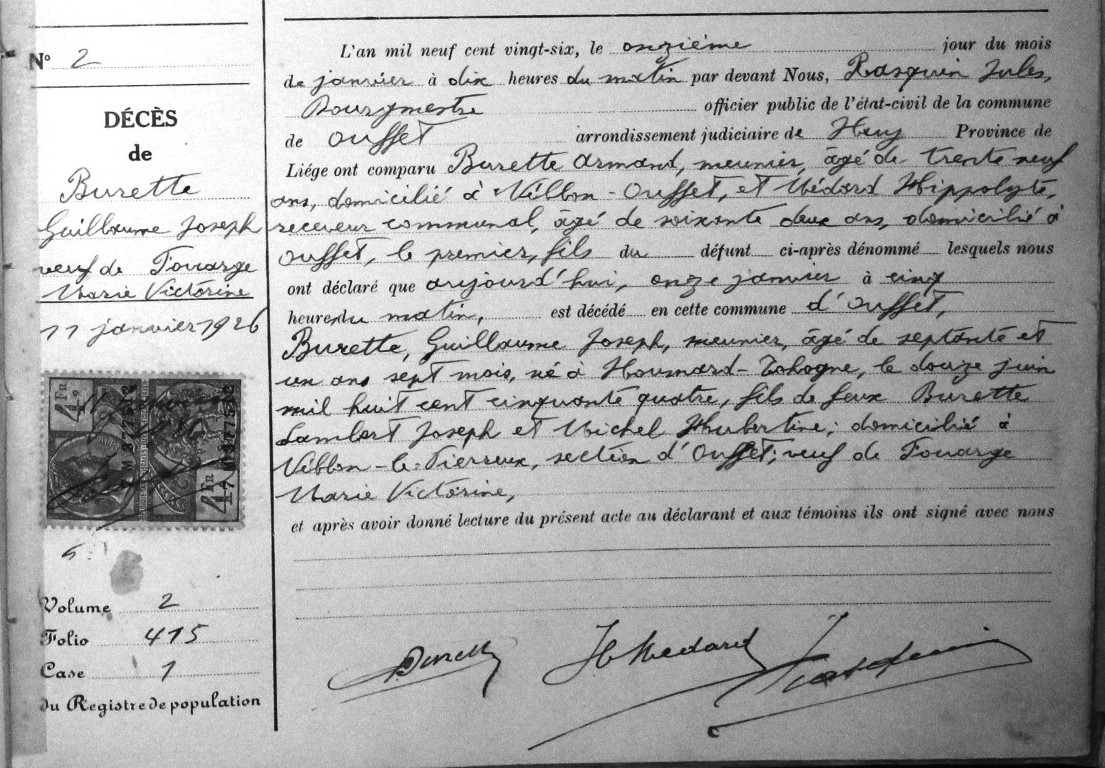 N° 2
DÉCÈS
de
Burette
Guillaume Joseph
veuf de Fouarge
Marie Victorine
11 janvier 1926
4 Fr
4 Fr
Volume 2
Folio 415
Case 1
du Registre de population
L'an mil neuf cent vingt-six, le onzième jour du mois
de janvier à dix heures du matin par devant Nous, Rasquin Jules,
Bourgmestre officier public de l'état-civil de la commune
de Ouffet arrondissement judiciaire de Huy Province de
Liége ont comparu Burette Armand, meunier, âgé de trente neuf
ans, domicilié à Vibbon-Ouffet, et Médard Hippolyte,
receveur communal, âgé de soixante deux ans, domicilié à
Ouffet, le premier, fils du défunt ci-après dénommé lesquels nous
ont déclaré que aujourd'hui, onze janvier à cinq
heures du matin, est décédé en cette commune d'Ouffet,
Burette, Guillaume Joseph, meunier, âgé de septante et
un ans sept mois, né à Houmard-Tohogne, le douze juin
mil huit cent cinquante quatre, fils de feux Burette
Lambert Joseph et Michel Hubertine; domicilié à
Vibbon-le-Pierreux, section d'Ouffet; veuf de Fouarge
Marie Victorine,
et après avoir donné lecture du présent acte au déclarant et aux témoins ils ont signé avec nous
H Medard